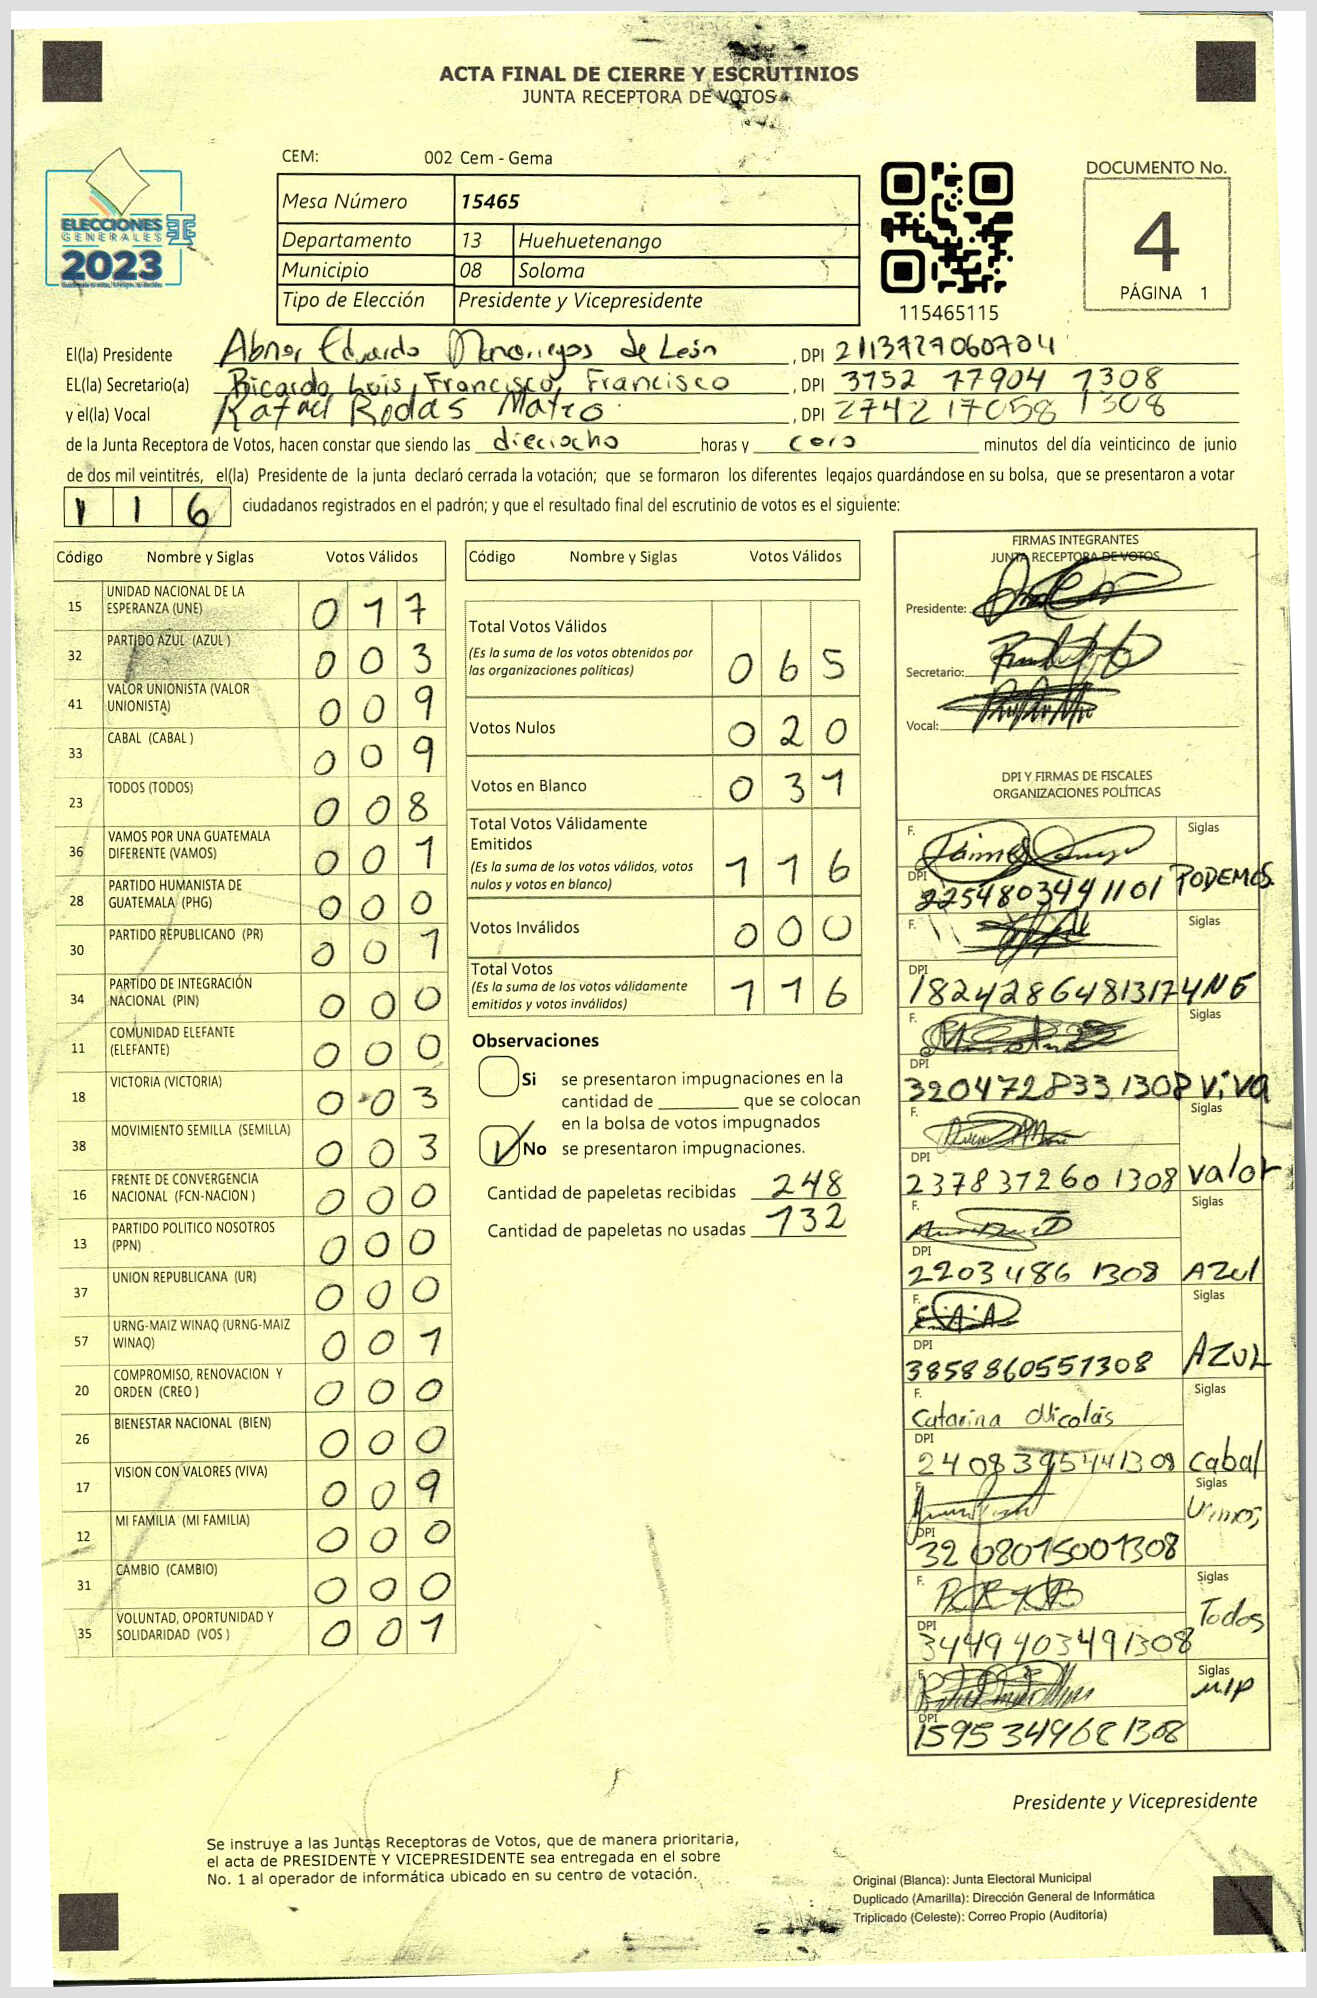 ACTA FINAL DE CIERRE Y ESCRUTINIOS
JUNTA RECEPTORA DE VOTOS
ELECCIONES
GENERALES
2023
CEM: 002 Cem - Gema
Mesa Número 15465
Departamento 13 Huehuetenango
Municipio 08 Soloma
Tipo de Elección Presidente y Vicepresidente
115465115
DOCUMENTO No.
4
PÁGINA 1
El(la) Presidente Abner Eduardo de León , DPI 2113727060704
EL(la) Secretario(a) Ricardo Luis, Francisco, Francisco , DPI 3752 77904 1308
y el(la) Vocal Rafael Rodas Mateo , DPI 2742 17058 1308
de la Junta Receptora de Votos, hacen constar que siendo las dieciocho horas y cero minutos del día veinticinco de junio
de dos mil veintitrés, el(la) Presidente de la junta declaró cerrada la votación; que se formaron los diferentes legajos guardándose en su bolsa, que se presentaron a votar
116 ciudadanos registrados en el padrón; y que el resultado final del escrutinio de votos es el siguiente:
Código Nombre y Siglas Votos Válidos
15 UNIDAD NACIONAL DE LA
ESPERANZA (UNE) 017
32 PARTIDO AZUL (AZUL ) 003
41 VALOR UNIONISTA (VALOR
UNIONISTA) 009
33 CABAL (CABAL ) 009
23 TODOS (TODOS) 008
36 VAMOS POR UNA GUATEMALA
DIFERENTE (VAMOS) 001
28 PARTIDO HUMANISTA DE
GUATEMALA (PHG) 000
30 PARTIDO REPUBLICANO (PR) 001
34 PARTIDO DE INTEGRACIÓN
NACIONAL (PIN) 000
11 COMUNIDAD ELEFANTE
(ELEFANTE) 000
18 VICTORIA (VICTORIA) 003
38 MOVIMIENTO SEMILLA (SEMILLA) 003
16 FRENTE DE CONVERGENCIA
NACIONAL (FCN-NACION ) 000
13 PARTIDO POLITICO NOSOTROS
(PPN) 000
37 UNION REPUBLICANA (UR) 000
57 URNG-MAIZ WINAQ (URNG-MAIZ
WINAQ) 001
20 COMPROMISO, RENOVACION Y
ORDEN (CREO ) 000
26 BIENESTAR NACIONAL (BIEN) 000
17 VISION CON VALORES (VIVA) 009
12 MI FAMILIA (MI FAMILIA) 000
31 CAMBIO (CAMBIO) 000
35 VOLUNTAD, OPORTUNIDAD Y
SOLIDARIDAD (VOS ) 001
Código Nombre y Siglas Votos Válidos
Total Votos Válidos
(Es la suma de los votos obtenidos por
las organizaciones políticas) 065
Votos Nulos 020
Votos en Blanco 031
Total Votos Válidamente
Emitidos
(Es la suma de los votos válidos, votos
nulos y votos en blanco) 116
Votos Inválidos 000
Total Votos
(Es la suma de los votos válidamente
emitidos y votos inválidos) 116
Observaciones
Si se presentaron impugnaciones en la
cantidad de ________ que se colocan
en la bolsa de votos impugnados
No se presentaron impugnaciones.
Cantidad de papeletas recibidas 248
Cantidad de papeletas no usadas 132
FIRMAS INTEGRANTES
JUNTA RECEPTORA DE VOTOS
Presidente:
Secretario:
Vocal:
DPI Y FIRMAS DE FISCALES
ORGANIZACIONES POLÍTICAS
F. Siglas
DPI 2254803441101 PODEMOS
F. Siglas
DPI 1824286481317 UNE
F. Siglas
DPI 3204728331308 viva
F. Siglas
DPI 2378372601308 valor
F. Siglas
DPI 2203486 1308 AZul
F. Siglas
DPI 3858860551308 AZUL
F. Catarina Nicolás Siglas
DPI 2408395441308 cabal
F. Siglas
DPI 3208015001308
F. Siglas
DPI 3449403491308 Todos
F. Siglas
DPI 1595349681308 MLP
Presidente y Vicepresidente
Se instruye a las Juntas Receptoras de Votos, que de manera prioritaria,
el acta de PRESIDENTE Y VICEPRESIDENTE sea entregada en el sobre
No. 1 al operador de informática ubicado en su centro de votación.
Original (Blanca): Junta Electoral Municipal
Duplicado (Amarilla): Dirección General de Informática
Triplicado (Celeste): Correo Propio (Auditoría)